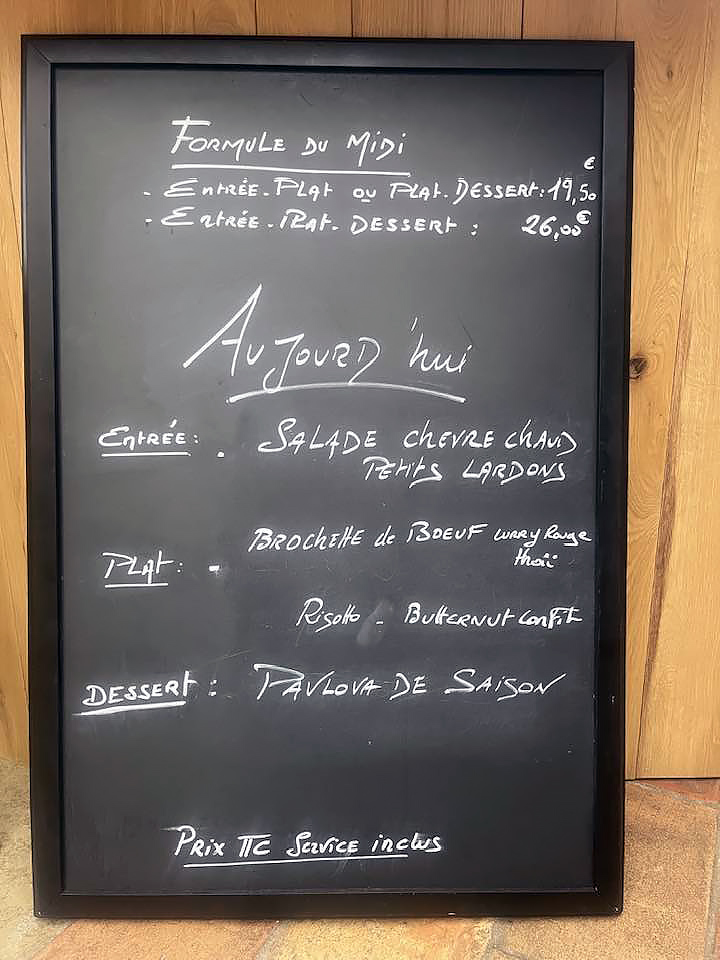 FORMULE DU MIDI
- ENTRÉE-PLAT OU PLAT-DESSERT: 19,50 €
- ENTRÉE-PLAT-DESSERT : 26,00 €
AUJOURD'hui
ENTRÉE: . SALADE CHEVRE CHAUD
PETITS LARDONS
PLAT: - BROCHETTE de BOEUF curry Rouge
thaïi
Risotto - BUTTERNUT confit
DESSERT : PAVLOVA DE SAISON
PRIX TTC Service inclus